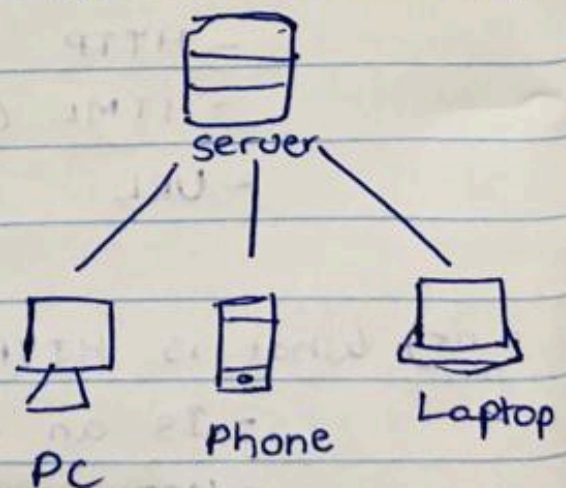 server
PC
Phone
Laptop